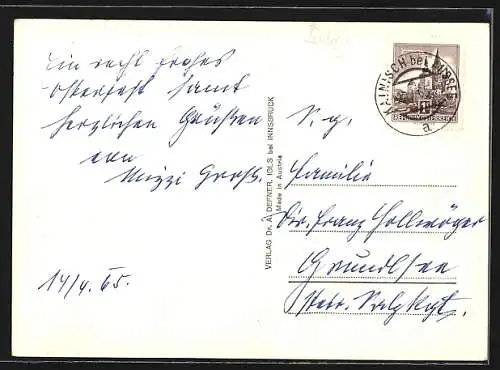 Ein recht frohes
Osterfest samt
herzlichen Grüßen
von
Mizzi Groß.
14/4. 65.
VERLAG DR. A. DEFNER, IGLS bei INNSBRUCK
Made in Austria
KAINISCH bei AUSSEE
a
S. g.
Familie
Dir. Franz Hollwöger
Grundlsee
Steir. Salzkgt.